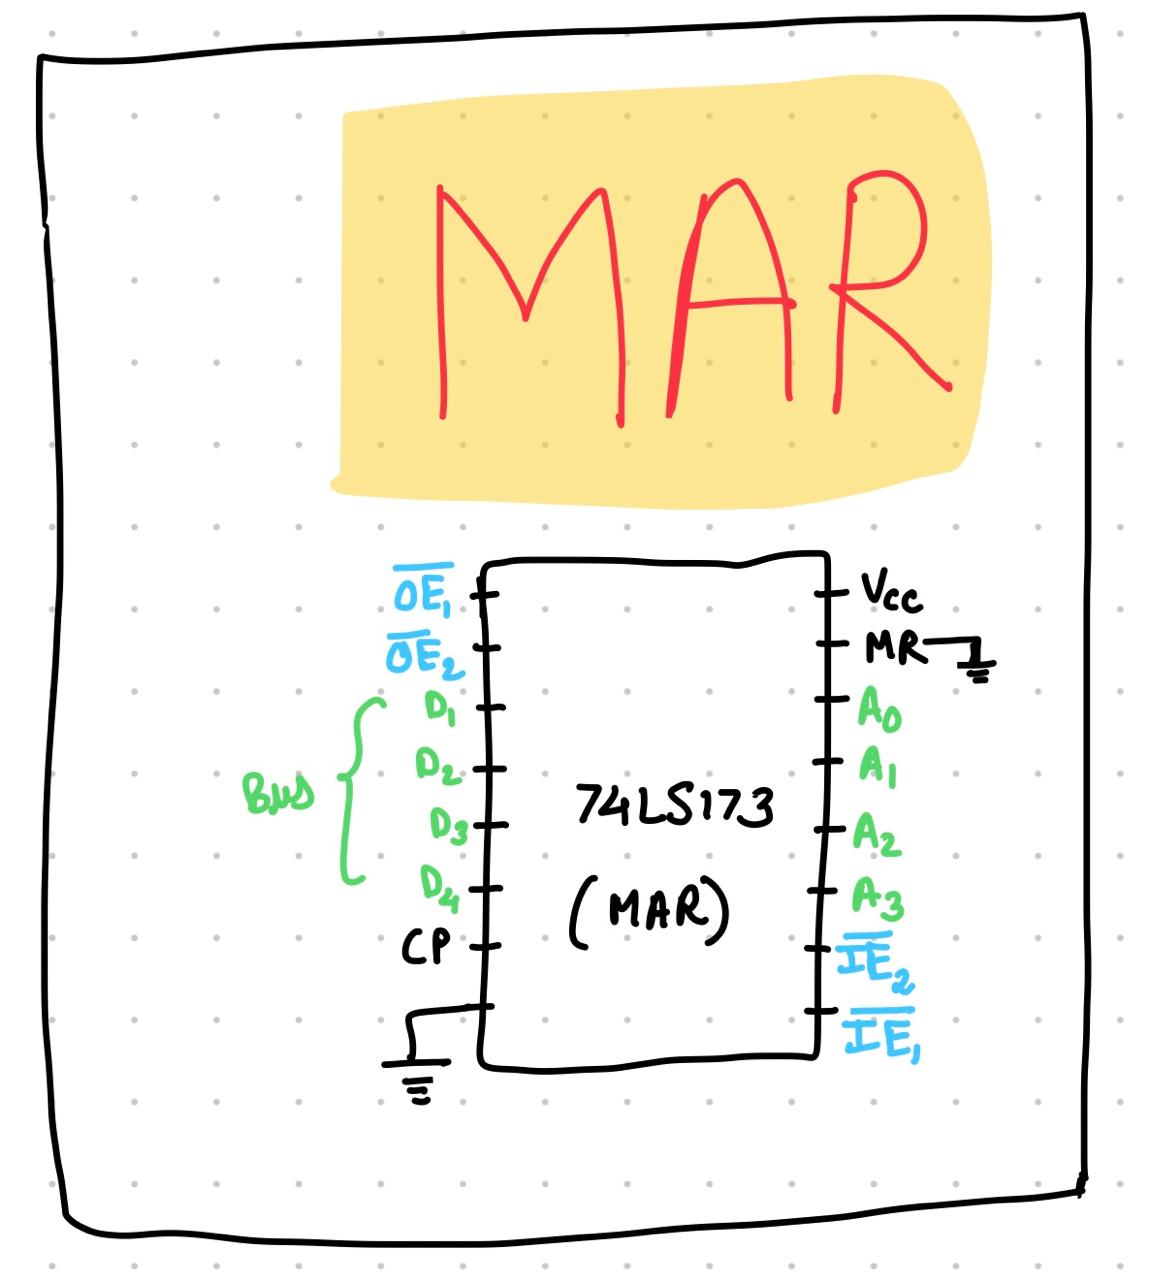 MAR
O̅E̅₁
O̅E̅₂
D₁
D₂
D₃
D₄
CP
Bus
74LS173
(MAR)
Vcc
MR
A₀
A₁
A₂
A₃
I̅E̅₂
I̅E̅₁